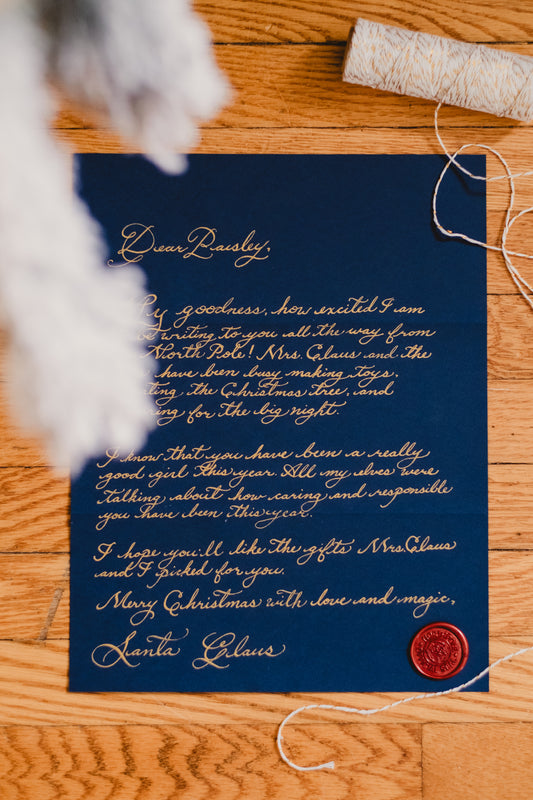 Dear Paisley,
goodness, how excited I am
writing to you all the way from
North Pole! Mrs. Claus and the
have been busy making toys,
the Christmas tree, and
for the big night.
I know that you have been a really
good girl this year. All my elves were
talking about how caring and responsible
you have been this year.
I hope you'll like the gifts Mrs. Claus
and I picked for you.
Merry Christmas with love and magic,
Santa Claus